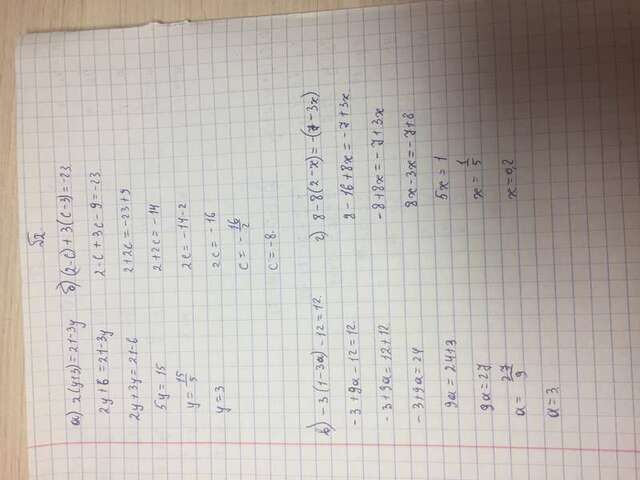 √2.
а) 2(y+3)=21-3y
2y+6=21-3y
2y+3y=21-6
5y=15
y=15/5
y=3
б) (2-c)+3(c-3)=-23
2-c+3c-9=-23
2+2c=-23+9
2+2c=-14
2c=-14-2
2c=-16
c=-16/2
c=-8.
в) -3(1-3a)-12=12.
-3+9a-12=12.
-3+9a=12+12
-3+9a=24
9a=24+3
9a=27
a=27/9
a=3.
г) 8-8(2-x)=-(7-3x)
8-16+8x=-7+3x
-8+8x=-7+3x
8x-3x=-7+8
5x=1
x=1/5
x=0,2